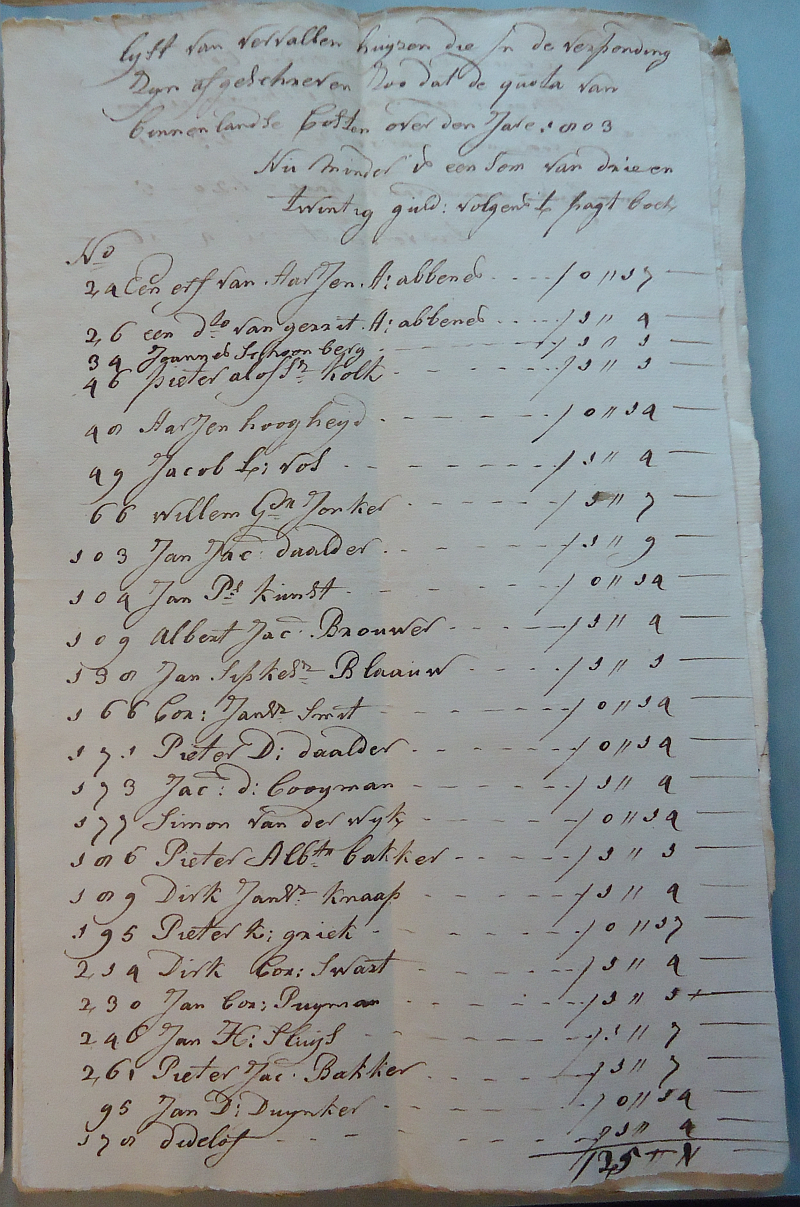 lyst van vervallen huyzen die in de verponding
Zyn afgeschreven Zoo dat de quota van
binnenlandse Costen over den Jare 1803
Nu minder is een som van drie en
twintig guld: volgens t pagt boek
No
24 Een erf van Aarjen A: abbenes - - - - / 0 " 17 —
26 een do van gerrit A: abbenes - - - / 1 " 4
34 Joannes Schoonberg - - - - / 1 " 1 —
46 pieter alofsz kolk - - - - / 1 " 1 —
48 Aarjen hoogheyd - - - - / 0 " 14 —
49 Jacob L: vos - - - - / 1 " 4 —
66 willem Gsn Jonker - - - - / 1 " 7 —
103 Jan Jac: daalder - - - - / 1 " 9 —
104 Jan Ps kunst - - - - / 0 " 14 —
109 Albert Jac: Brouwer - - - - / 1 " 4 —
138 Jan Sipkesz Blaauw - - - - / 1 " 1 —
166 Cor: Jansz Smit - - - - / 0 " 14 —
171 Pieter D: daalder - - - - / 0 " 14 —
173 Jac: d: Cooyman - - - - / 1 " 4 —
177 Simon van der wyk - - - - / 0 " 14 —
186 Pieter Albtsz bakker - - - - / 1 " 1 —
189 Dirk Jansz knaap - - - - / 1 " 4 —
195 Pieter k: griek - - - - / 0 " 17 —
214 Dirk Cor: Swart - - - - / 1 " 4 —
230 Jan Cor: Puyman - - - - / 1 " 1 +
246 Jan H: Sluys - - - - / 1 " 7 —
261 Pieter Jac: Bakker - - - - / 1 " 7 —
95 Jan D: Duynker - - - - / 0 " 14 —
178 didelof - - - - / 1 " 4 —
/ 25 "